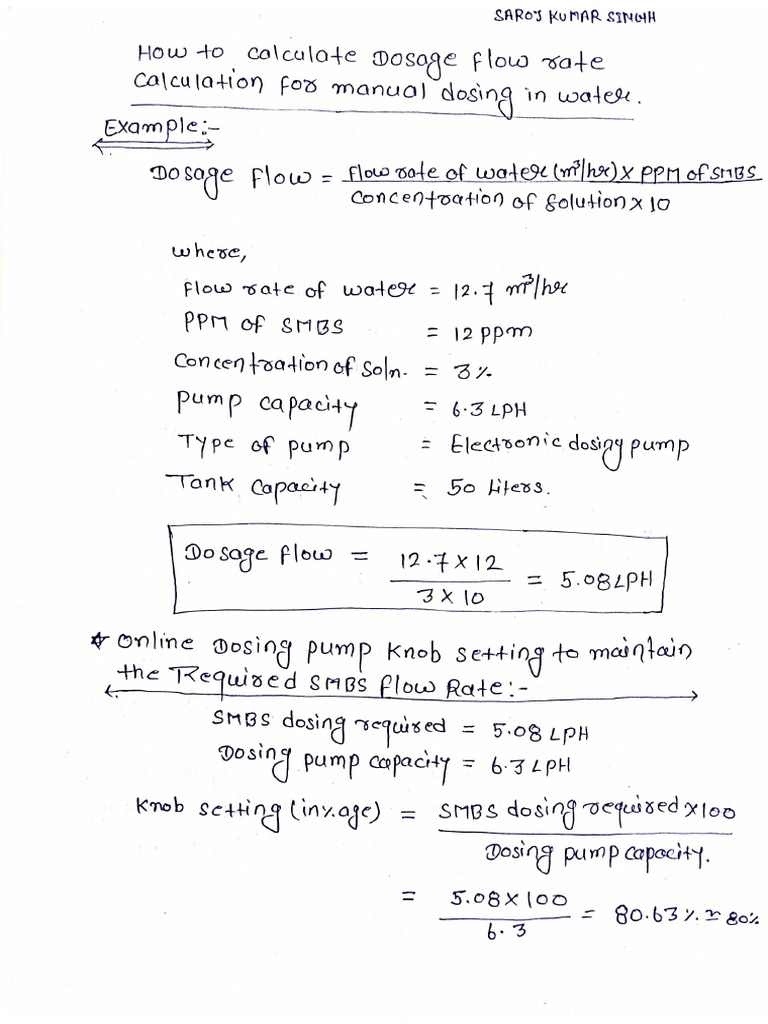 SAROJ KUMAR SINGH
How to calculate Dosage flow rate
calculation for manual dosing in water.
Example:-
Dosage flow = flow rate of water (m³/hr) x PPM of SMBS
concentration of solution x 10
where,
flow rate of water = 12.7 m³/hr
PPM of SMBS = 12 ppm
concentration of soln. = 3%
Pump capacity = 6.3 LPH
Type of pump = Electronic dosing pump
Tank capacity = 50 Liters.
Dosage flow = 12.7 x 12
3 x 10 = 5.08 LPH
* Online Dosing pump knob setting to maintain
the Required SMBS flow Rate:-
SMBS dosing required = 5.08 LPH
Dosing pump capacity = 6.3 LPH
Knob setting (in%age) = SMBS dosing required x100
Dosing pump capacity.
= 5.08 x 100
6.3 = 80.63% ≃ 80%